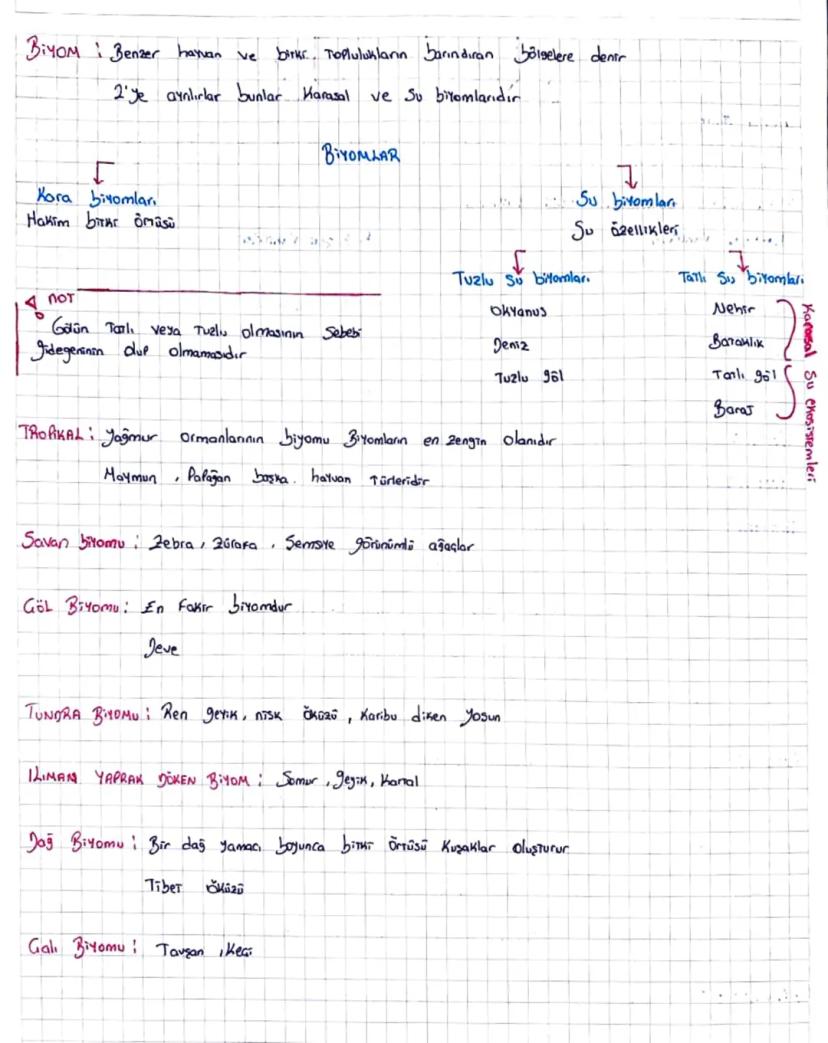 BiYOM : Benzer hayvan ve bitki. Toplulukların barındıran bölgelere denir
2'ye ayrılırlar bunlar Karasal ve Su biyomlarıdır
BiYOMLAR
Kara biyomları
Hakim bitki örtüsü
Su biyomları
Su özellikleri
Tuzlu Su biyomları
Tatlı Su biyomları
Okyanus
Deniz
Tuzlu göl
Nehir
Bataklık
Tatlı göl
Baraj
Karasal Su ekosistemleri
NOT
Gölün Tatlı veya Tuzlu olmasının Sebebi
gidegeninin olup olmamasıdır
TROPİKAL : Yağmur ormanlarının biyomu Biyomların en zengin olanıdır
Maymun , Papağan başka. hayvan Türleridir
Savan biyomu : Zebra , Zürafa , Şemsiye görünümlü ağaçlar
GÖL Biyomu : En Fakir biyomdur
Deve
TUNDRA BiYOMU : Ren geyik, misk öküzü , Karibu diken Yosun
ILIMAN YAPRAK DÖKEN BiYOM : Somur , geyik, Kartal
Dağ Biyomu : Bir dağ yamacı boyunca bitki örtüsü Kuşaklar oluşturur
Tibet öküzü
Çalı Biyomu : Tavşan , Keçi